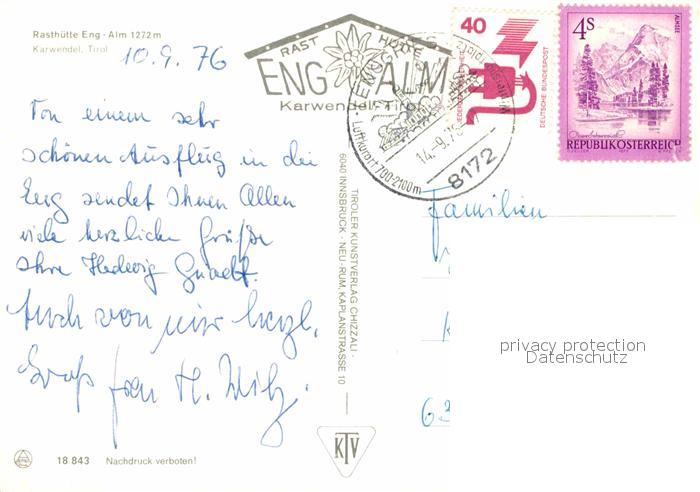 Rasthütte Eng - Alm 1272m
Karwendel, Tirol
10.9.76
Von einem sehr
schönen Ausflug in die
Eng sendet Ihnen Allen
viele herzliche Grüße
Ihre Hedwig
Auch von mir herzl.
Gruß Frau H.
18 843 Nachdruck verboten!
RAST HÜTTE
ENG ALM
Karwendel-Tirol
Luftkurort 700-2100m
14.-9.76
8172
TIROLER KUNSTVERLAG CHIZZALI ·
6040 INNSBRUCK - NEU-RUM, KAPLANSTRASSE 10
KTV
40
DEUTSCHE BUNDESPOST
4S
ALMSEE
REPUBLIK ÖSTERREICH
Familien
privacy protection
Datenschutz